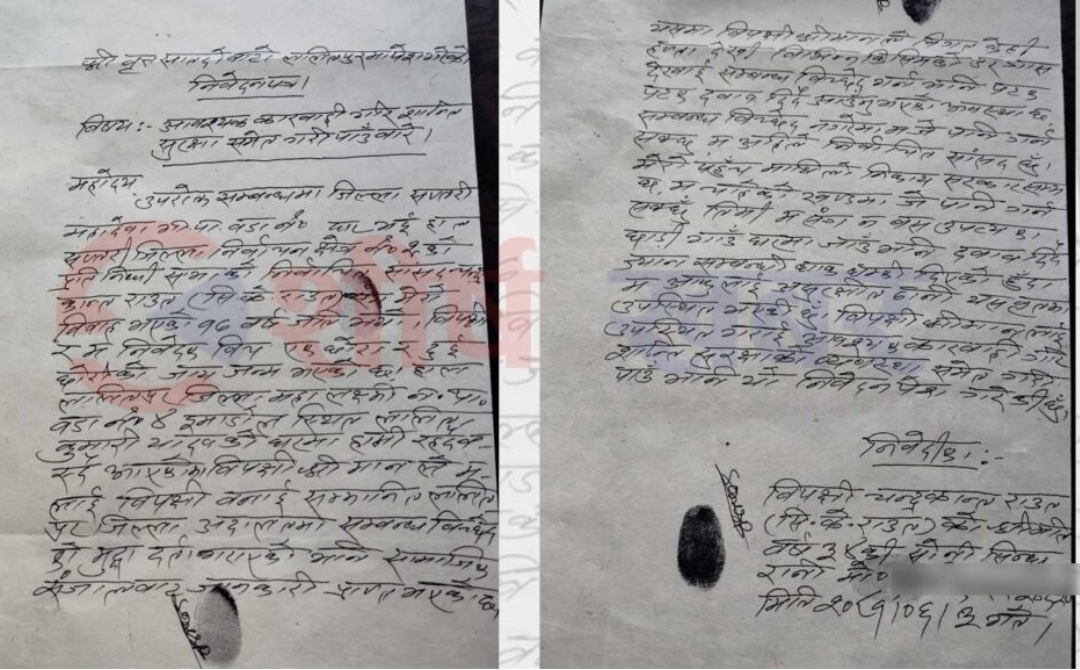 श्री वृत सातदोबाटो ललितपुरमा पेश गरेको
निवेदनपत्र।
विषय:- आवश्यक कारवाही गरि शान्ति
सुरक्षा समेत गरी पाउँ बारे।
महोदय
उपरोक्त सम्बन्धमा जिल्ला सप्तरी
महादेवा गा.पा. वडा नं० घर भई हाल
सप्तरी जिल्ला निर्वाचन क्षेत्र नं० को
प्रतिनिधी सभाको निर्वाचित सांसद चन्द्र
कान्त राउत (सि.के राउत) मेरो
विवाह भएको १६ वर्ष जति भयो। विपक्षी
र म निवेदक विच छोरा र दुई
छोरीको जाय जन्म भएको छ। हाल
ललितपुर जिल्ला महालक्ष्मी न.पा.
वडा नं० ४ इमाडोल स्थित ललिता
कुमारी यादवको घरमा हामी रहदै बस्
दै आएकोमा विपक्षी श्रीमानले म
लाई विपक्षी बनाई सम्मानित ललित
पुर जिल्ला अदालतमा सम्बन्ध विच्छेद
को मुद्दा दर्ता गराएको भनि सामाजिक
संजालबाट जानकारी प्राप्त भएको छ।
यसमा विपक्षी श्रीमानले विगत केही
हप्ता देखी विभिन्न किसिमको डर त्रास
देखाई सम्बन्ध विच्छेद गर्न भनि पटक
पटक दवाव दिँदै आउनु भएको अवस्था छ
सम्बन्ध विच्छेद नगरेमा म जे पनि गर्न
सक्छु म अहिले निर्वाचित सांसद हुँ।
मेरो पहुँच माथिल्लो निकाय सरकार सम्म
छ म चाहेको खण्डमा जे पनि गर्न
सक्छु तिमी म सँग न बस
छाडी गाउँ घरमा जाउ भनि दवाव दिँदै
ज्यान सम्बन्धी धाक धम्की दिएको हुँदा
म आफुलाई असुरक्षीत ठानी यस वृत्तमा
उपस्थित भएकी छु। विपक्षी श्रीमानलाई
उपस्थित गराई आवश्यक कारवाही गरि
शान्ति सुरक्षाको व्यवस्था समेत गरी
पाउँ भनि यो निवेदन पेश गरेकी छु।
निवेदीका:-
विपक्षी चन्द्रकान्त राउत
(सि.के.राउत) को श्रीमति
वर्ष ३४ की सोनी सिन्धा
रानी मो०
मिति २०८१/०६/३ गते।
शीर्ष खबर